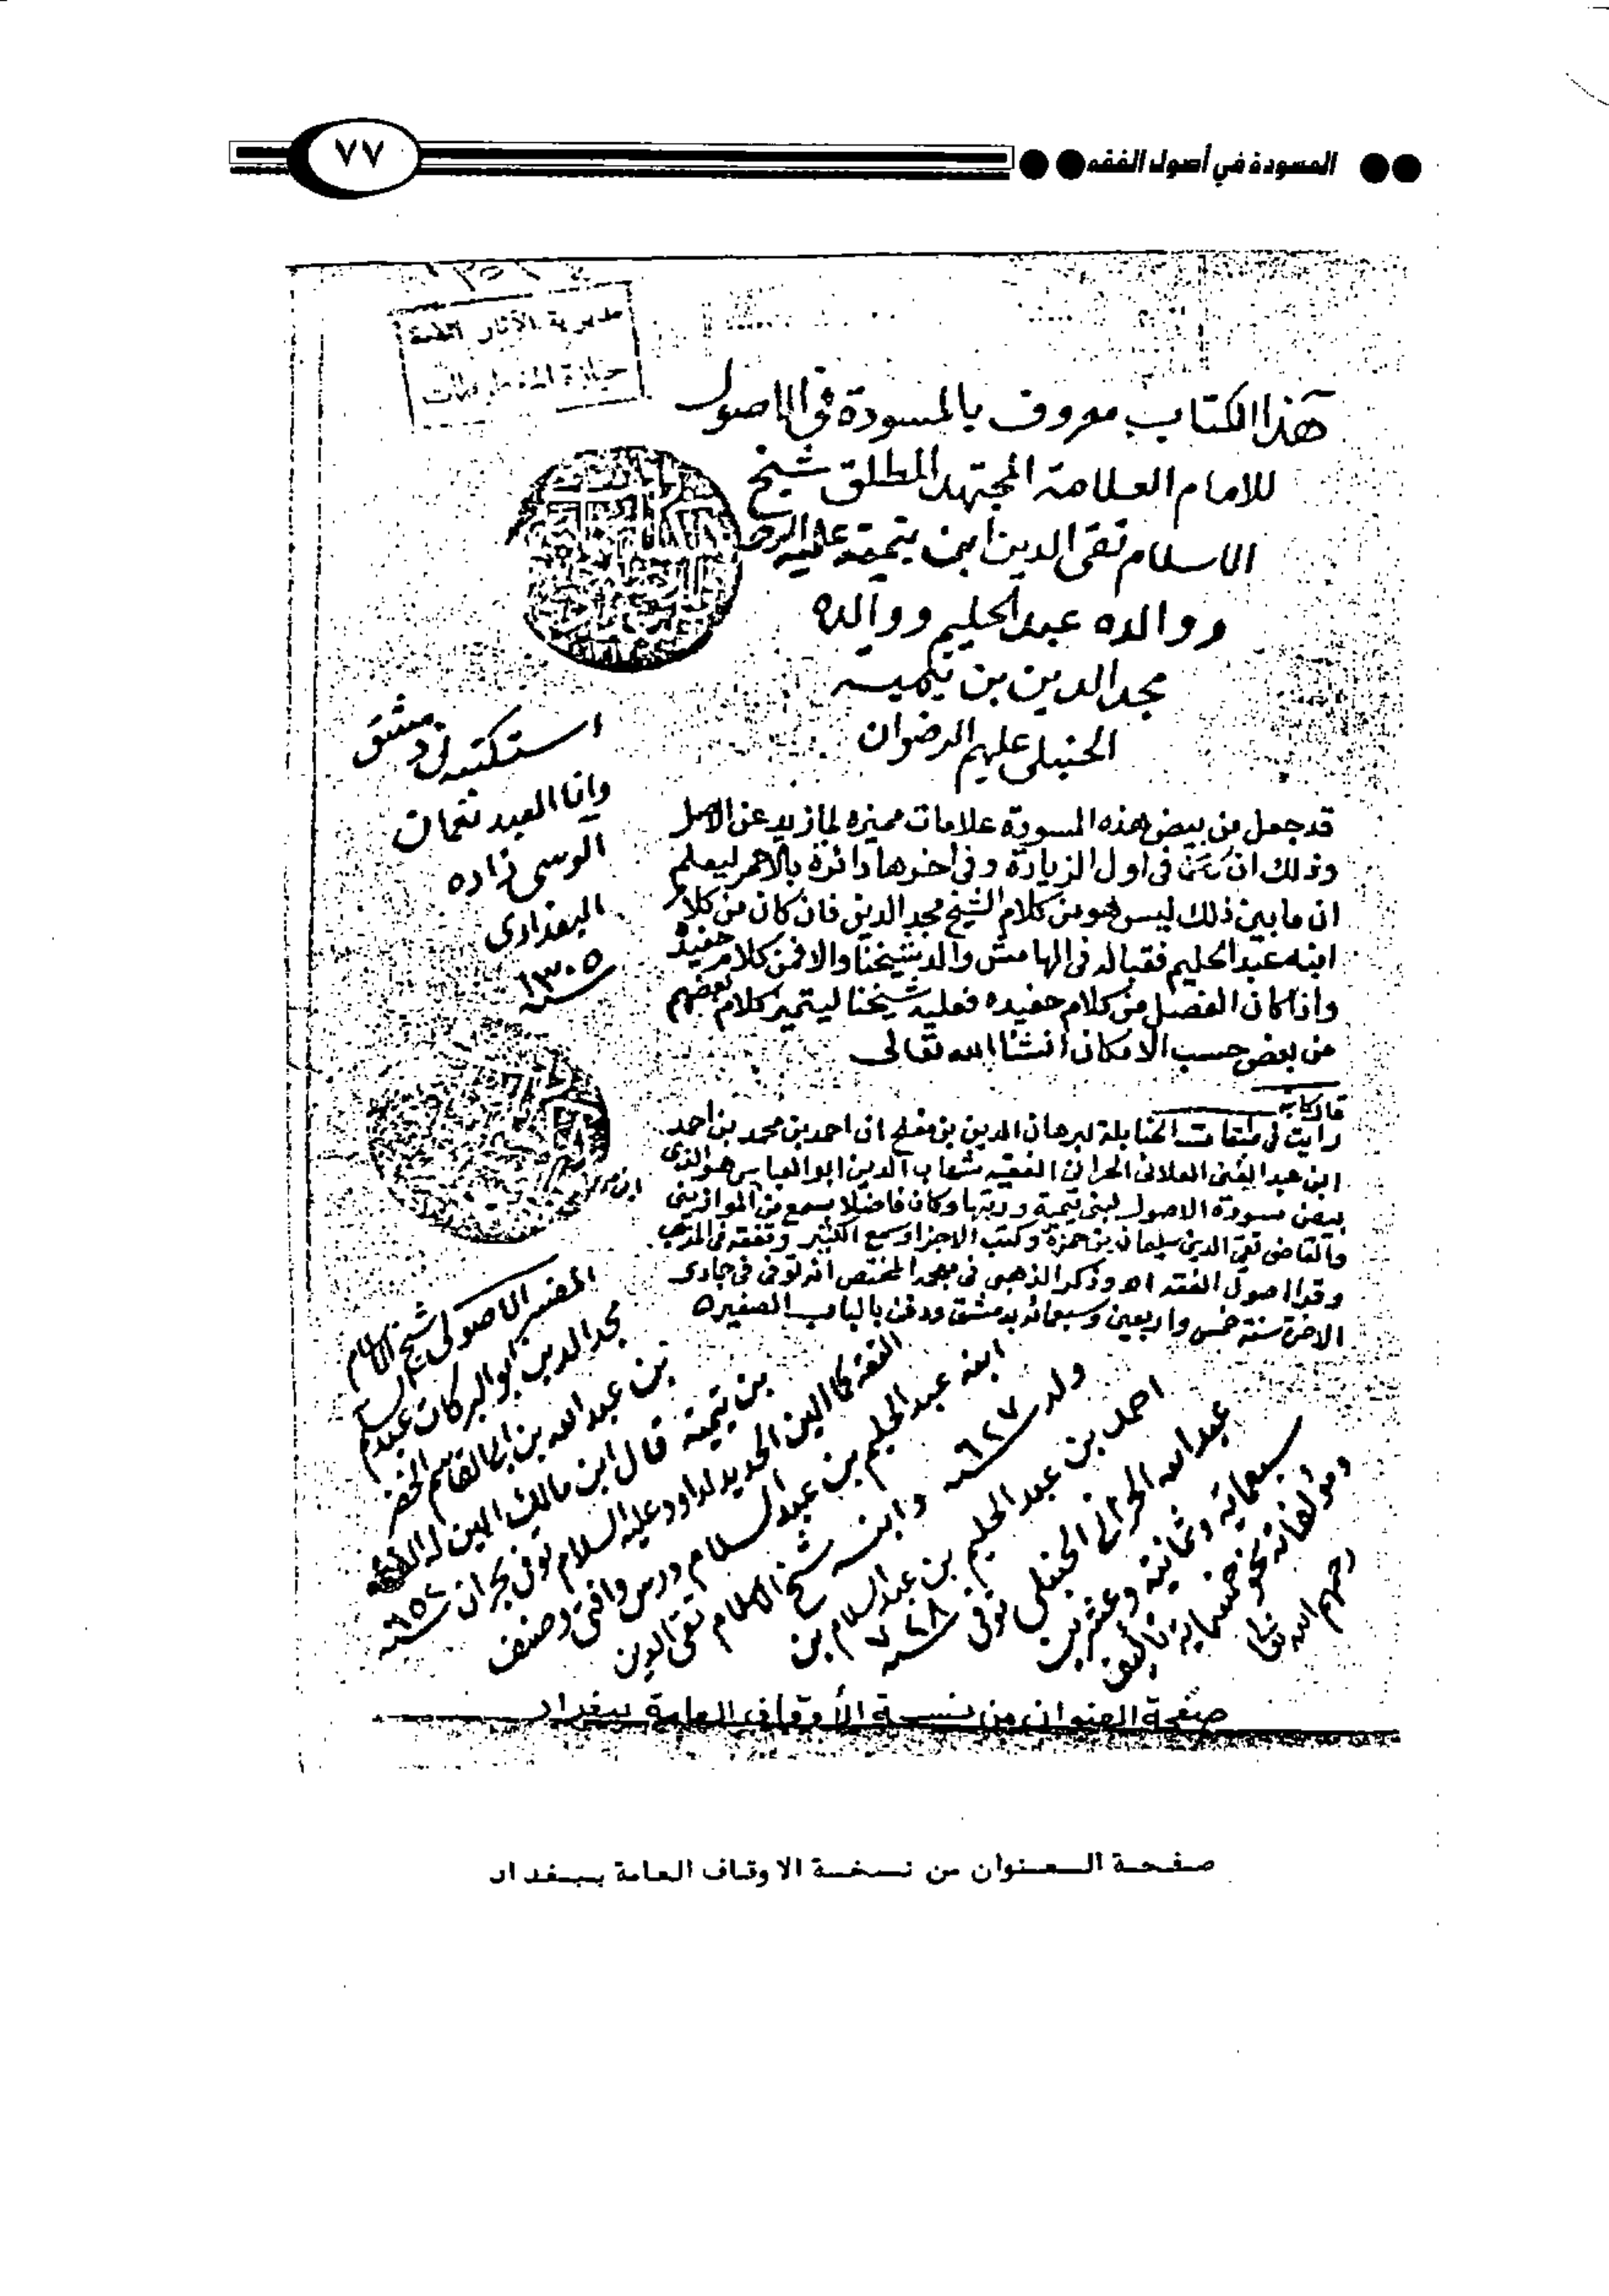 المسودة في أصول الفقه
٧٧
مديرية الآثار
هذا الكتاب معروف بالمسودة في الاصول
للامام العلامة المجتهد المطلق شيخ
الاسلام تقى الدين ابن تيمية عليه الرحمة
ووالده عبد الحليم ووالده
مجد الدين بن تيميه
الحنبلى عليهم الرضوان
استكتبته فى دمشق
وانا العبد نعمان
الوسى زاده
البغدادى
سنه ١٣٠٥
قد جعل من بيض هذه المسودة علامات مميزه لما زيد عن الاصل
وذلك ان فى اول الزيادة وفى اخرها دائرة بالاحمر ليعلم
ان ما بين ذلك ليس هو من كلام الشيخ مجد الدين فان كان من كلام
ابنه عبد الحليم فقباله فى الهامش والد شيخنا والا فمن كلام حفيده
واذا كان الفصل من كلام حفيده فعليه شيخنا ليتميز كلام بعضهم
من بعض حسب الامكان انشا الله تعالى
قال كاتبه
رايت فى طبقات الحنابلة لبرهان الدين بن مفلح ان احمد بن محمد بن احمد
ابن عبد الغنى الحرانى الفقيه شهاب الدين ابو العباس هو الذى
بيض مسودة الاصول لبنى تيمية ورتبها وكان فاضلا سمع من الموازينى
والقاضى تقى الدين سليمان بن حمزة وكتب الاجزا وسمع الكثير وتفقه فى المذهب
وقرا اصول الفقه اه وذكر الذهبى فى معجمه المختص انه توفى فى جمادى
الاخرة سنة خمس واربعين وسبعمائه بدمشق ودفن بالباب الصغيره
المفسر الاصولى شيخ الاسلام
مجد الدين ابو البركات عبد السلام
بن عبد الله بن ابى القاسم الخضر
بن تيمية قال ابن مالك الين له الفقه
كما الين الحديد لداود عليه السلام توفى بحران سنه ٦٥٢
ابنه عبد الحليم بن عبد السلام درس وافتى وصنف
ولد سنه ٦٢٧ وابنه شيخ الاسلام تقى الدين
احمد بن عبد الحليم بن عبد السلام بن
عبد الله الحرانى الحنبلى توفى سنه ٧٢٨
سبعمائه وثمانيه وعشرين
ومولفاته نحو خمسمايه تاليف
رحمهم الله تعالى
صفحة العنوان من نسخة الأوقاف العامة ببغداد
صفحة العنوان من نسخة الاوقاف العامة ببغداد